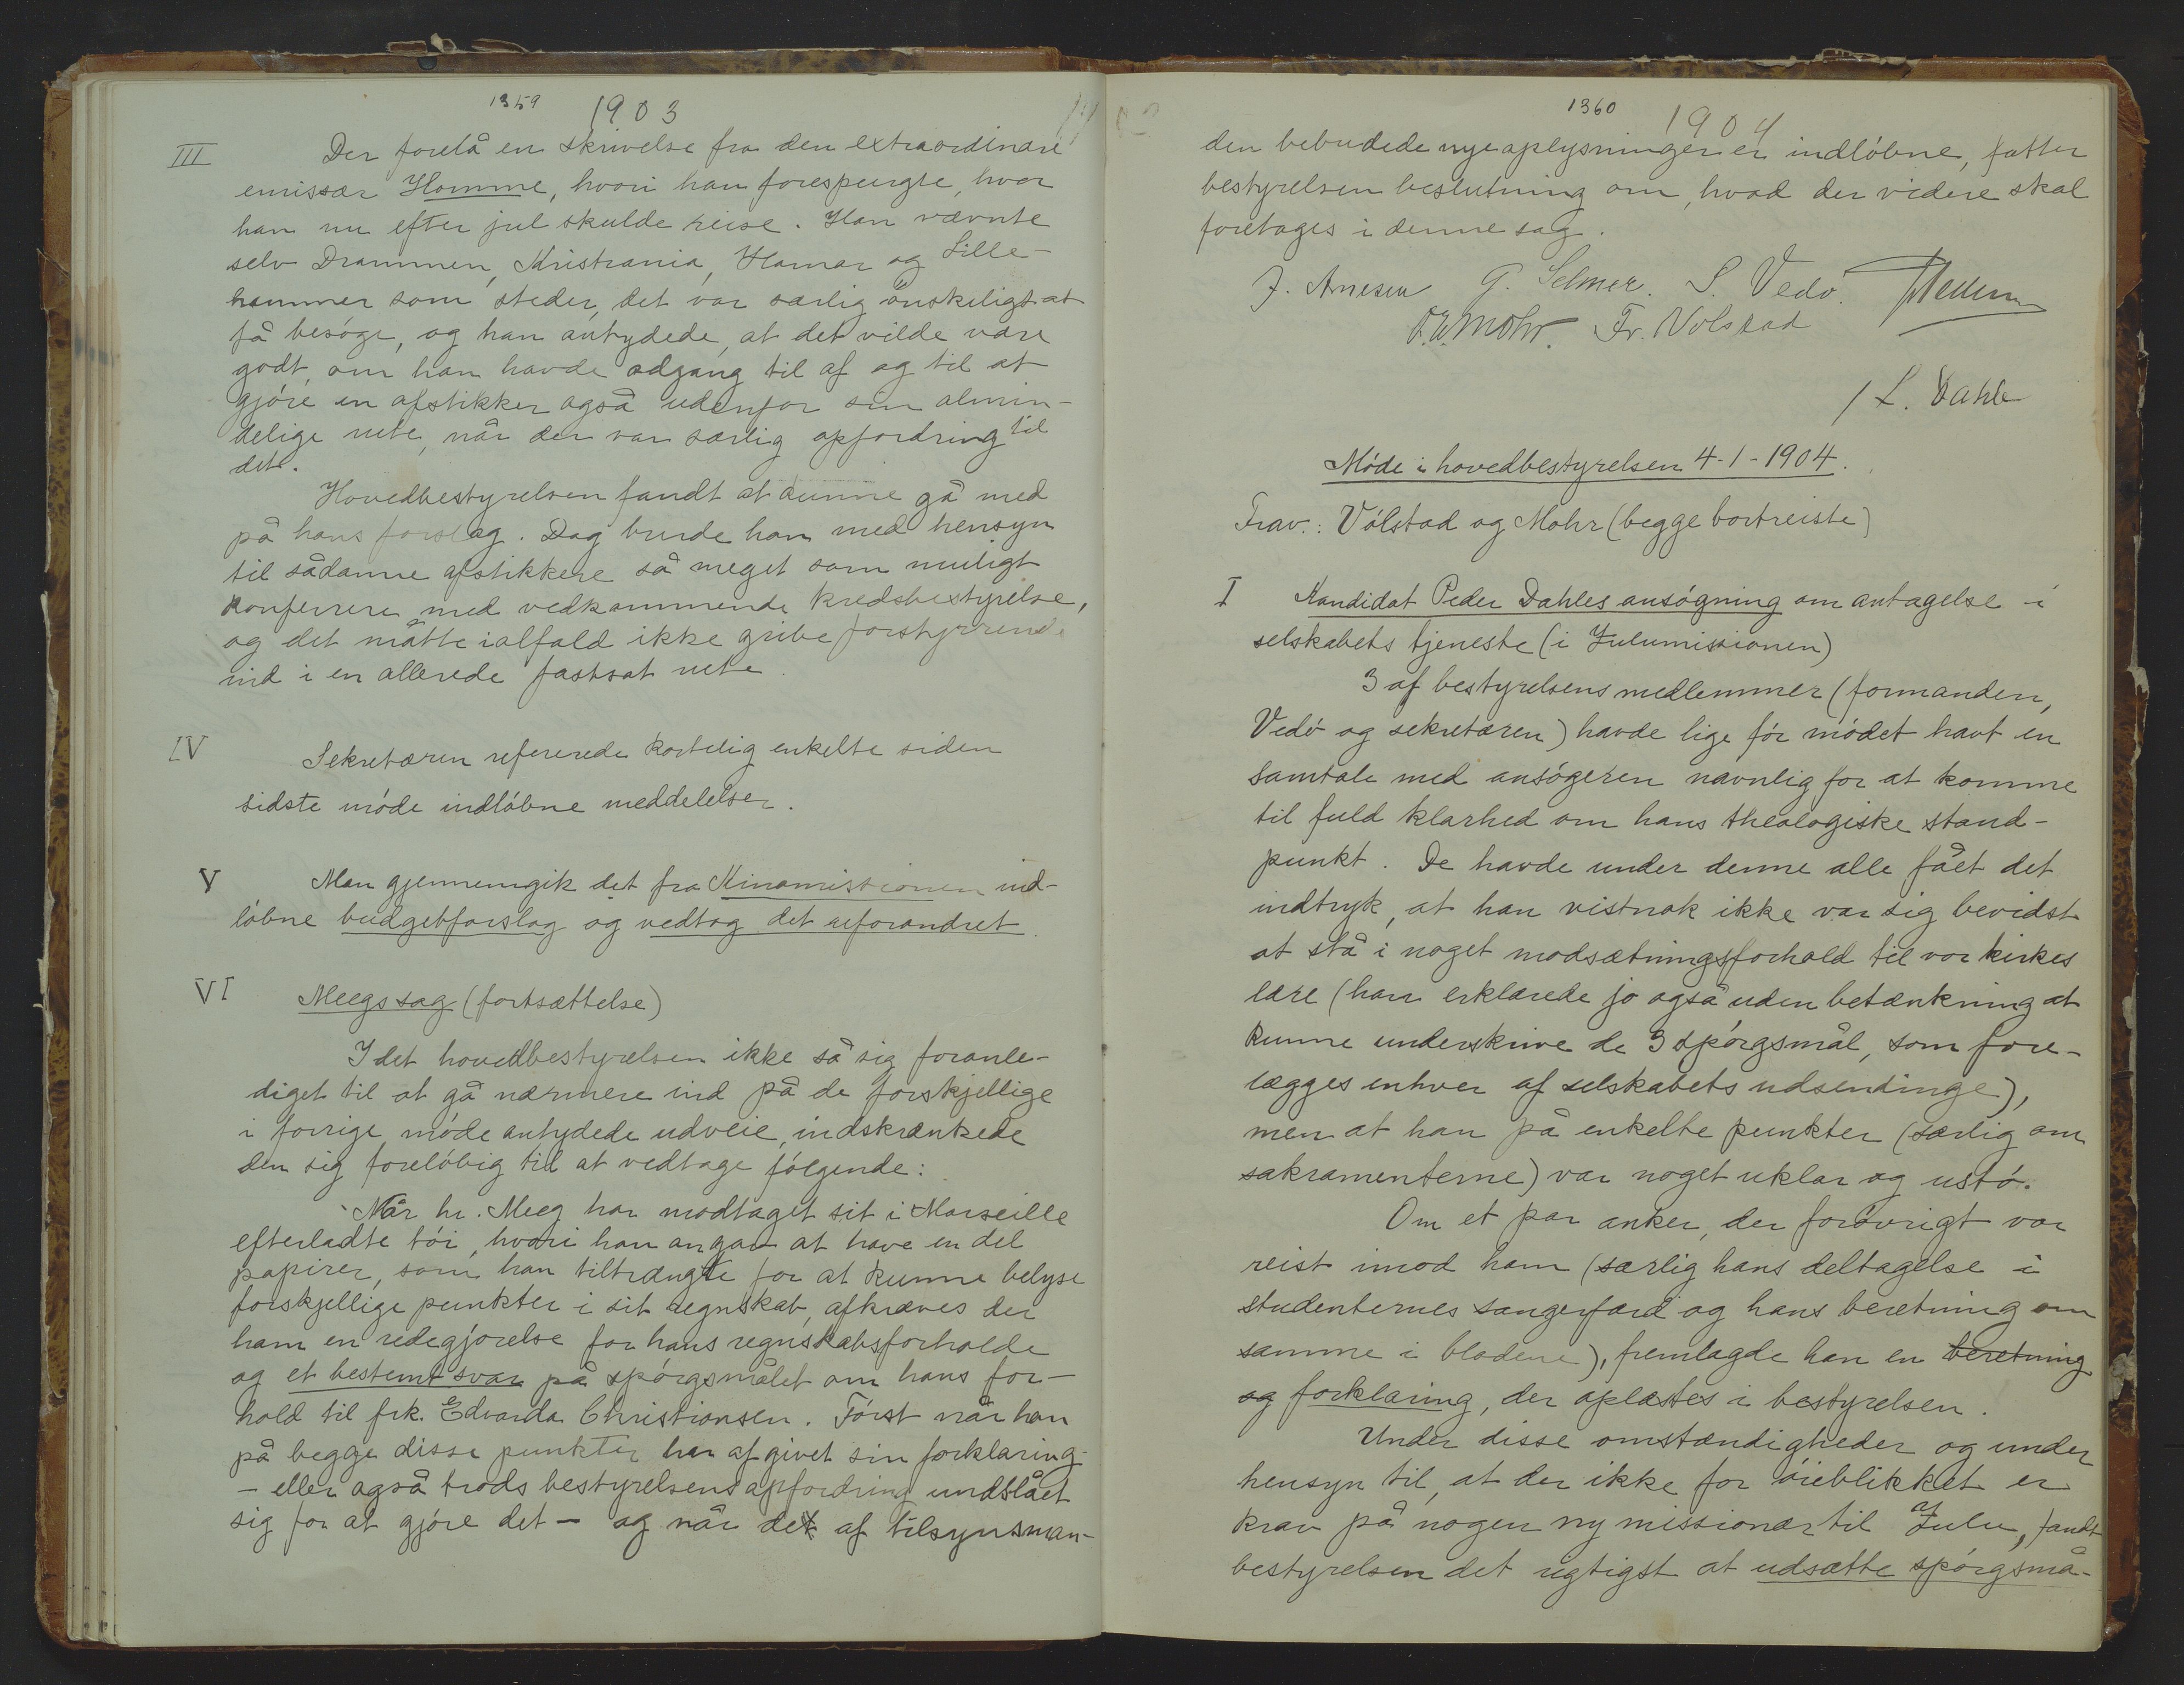 1359 1903
III Der forelå en skrivelse fra den extraordinære
emissær Homme, hvori han forespurgte, hvor
han nu efter jul skulde reise. Han nævnte
selv Drammen, Kristiania, Hamar og Lille-
hammer som steder, det var særlig ønskeligt at
få besøge, og han antydede, at det vilde være
godt, om han havde adgang til af og til at
gjøre en afstikker også udenfor sin almin-
delige rute, når der var særlig opfordring til
det.
Hovedbestyrelsen fandt at kunne gå med
på hans forslag. Dog burde han med hensyn
til sådanne afstikkere så meget som muligt
konferere med vedkommende kredsbestyrelse,
og det måtte ialfald ikke gribe forstyrrende
ind i en allerede fastsat rute.
IV Sekretæren refererede kortelig enkelte siden
sidste møde indløbne meddelelser.
V Man gjennemgik det fra Kinamissionen ind-
løbne budgetforslag og vedtog det uforandret.
VI Meegs sag (fortsættelse)
Idet hovedbestyrelsen ikke så sig foranle-
diget til at gå nærmere ind på de forskjellige
i forrige møde antydede udveie, indskrænkede
den sig foreløbig til at vedtage følgende:
Når hr. Meeg har modtaget sit i Marseille
efterladte tøi, hvori han angav at have en del
papirer, som han tiltrængte for at kunne belyse
forskjellige punkter i sit regnskab, afkræves der
ham en redegjørelse for hans regnskabsforholde
og et bestemt svar på spørgsmålet om hans for-
hold til frk. Edvarda Christiansen. Først når han
på begge disse punkter har afgivet sin forklaring
– eller også trods bestyrelsens opfordring undslået
sig for at gjøre det – og når de af tilsynsman-
1360 1904
den bebudede nye oplysninger er indløbne, fatter
bestyrelsen beslutning om, hvad der videre skal
foretages i denne sag.
J. Arnesen G. Selmer. S. Vedø.
O. W. Mohr. Fr. Volstad
/ L. Dahle
Møde i hovedbestyrelsen 4-1-1904.
Frav.: Vølstad og Mohr (begge bortreiste)
I Kandidat Peder Dahles ansøgning om antagelse i
selskabets tjeneste (i Zulumissionen)
3 af bestyrelsens medlemmer (formanden,
Vedø og sekretæren) havde lige før mødet havt en
samtale med ansøgeren navnlig for at komme
til fuld klarhed om hans theologiske stand-
punkt. De havde under denne alle fået det
indtryk, at han vistnok ikke var sig bevidst
at stå i noget modsætningsforhold til vor kirkes
lære (han erklærede jo også uden betænkning at
kunne underskrive de 3 spørgsmål, som fore-
lægges enhver af selskabets udsendinge),
men at han på enkelte punkter (særlig om
sakramenterne) var noget uklar og ustø.
Om et par anker, der forøvrigt var
reist imod ham (særlig hans deltagelse i
studenternes sangerfærd og hans beretning om
samme i bladene), fremlagde han en beretning
og forklaring, der oplæstes i bestyrelsen.
Under disse omstændigheder og under
hensyn til, at der ikke for øieblikket er
krav på nogen ny missionær til Zulu, fandt
bestyrelsen det rigtigst at udsætte spørgsmå-